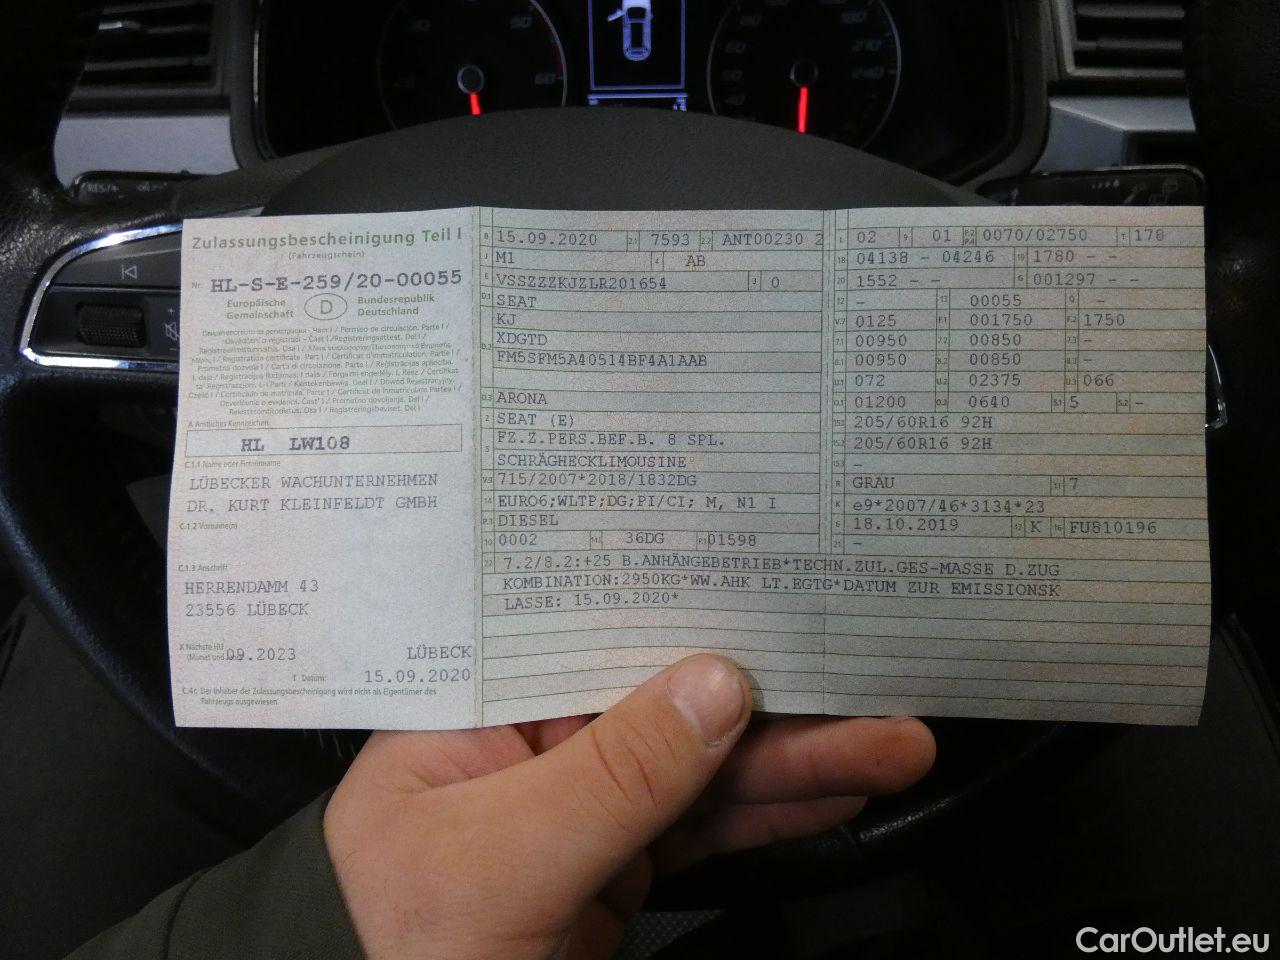 Zulassungsbescheinigung Teil I
(Fahrzeugschein)
Nr. HL-S-E-259/20-00055
Europäische Gemeinschaft D Bundesrepublik Deutschland
A Amtliches Kennzeichen
HL LW108
C.1.1 Name oder Firmenname
LÜBECKER WACHUNTERNEHMEN
DR. KURT KLEINFELDT GMBH
C.1.2 Vorname(n)
C.1.3 Anschrift
HERRENDAMM 43
23556 LÜBECK
X Nächste HU
(Monat und Jahr) 09.2023 LÜBECK
I Datum: 15.09.2020
C.4c Der Inhaber der Zulassungsbescheinigung wird nicht als Eigentümer des
Fahrzeugs ausgewiesen.
B 15.09.2020 2.1 7593 2.2 ANT00230 2
J M1 4 AB
E VSSZZZKJZLR201654 3 0
D.1 SEAT
KJ
D.2 XDGTD
FM5SFM5A40514BF4A1AAB
D.3 ARONA
2 SEAT (E)
5 FZ.Z.PERS.BEF.B. 8 SPL.
SCHRÄGHECKLIMOUSINE
V.9 715/2007*2018/1832DG
14 EURO6;WLTP;DG;PI/CI; M, N1 I
P.3 DIESEL
10 0002 14.1 36DG P.1 01598
L 02 9 01 P.2 P.4 0070/02750 T 178
18 04138 - 04246 19 1780 - -
20 1552 - - G 001297 - -
12 - 13 00055 Q -
V.7 0125 F.1 001750 F.2 1750
7.1 00950 7.2 00850 7.3 -
8.1 00950 8.2 00850 8.3 -
U.1 072 U.2 02375 U.3 066
O.1 01200 O.2 0640 S.1 5 S.2 -
15.1 205/60R16 92H
15.2 205/60R16 92H
15.3 -
R GRAU 11 7
K e9*2007/46*3134*23
6 18.10.2019 17 K 16 FU810196
21 -
22 7.2/8.2:+25 B.ANHÄNGEBETRIEB*TECHN.ZUL.GES-MASSE D.ZUG
KOMBINATION:2950KG*WW.AHK LT.EGTG*DATUM ZUR EMISSIONSK
LASSE: 15.09.2020*
CarOutlet.eu